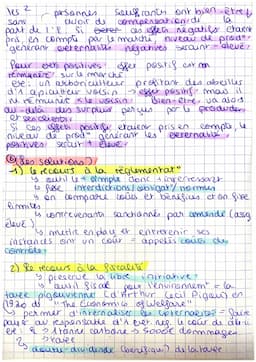 les 2 personnes souffrant ont bien-être
sans avoir de compensation de la
part de l'E. Si effets négatifs étaient
pris en compte par le marché, niveau de prod°
générant externalités négatives serait - élevé.
Pour ext positives : effet positif est non
rémunéré sur le marché.
Ex : un arboriculteur profitant des abeilles
d'1 apiculteur voisin → effet positif mais il
ne rémunère le voisin. Bien-être va alors
au-delà des surplus perçus par le producteur
et ses clients.
Si ces effets positifs étaient pris en compte, le
niveau de prod° générant les externalités
positives serait + élevé.
Les solutions :
1) le recours à la réglementat°
↳ outil le + simple donc + intéressant
↳ fixe interdictions/obligat°/normes
↳ on compare coûts et bénéfices et on fixe
limites
↳ contrevenants sanctionnés par amende (assez
élevé)
↳ mettre en place et entretenir ses
instands ont un coût = appelés coûts de
contrôle.
2) Le recours à la fiscalité
↳ préserve la libre initiative
↳ outil fiscal pour l'environnement = la
taxe pigouvienne (d'Arthur Cecil Pigou) en
1920 ds "The Economics of Welfare"
↳ permet d'internaliser les externalités = faire
payer au responsable d'1 ext. neg. le coût de
ex : 1 tonne carbone → 500€ dommages
↳ taxe
double dividende (bénéfique) de la taxe